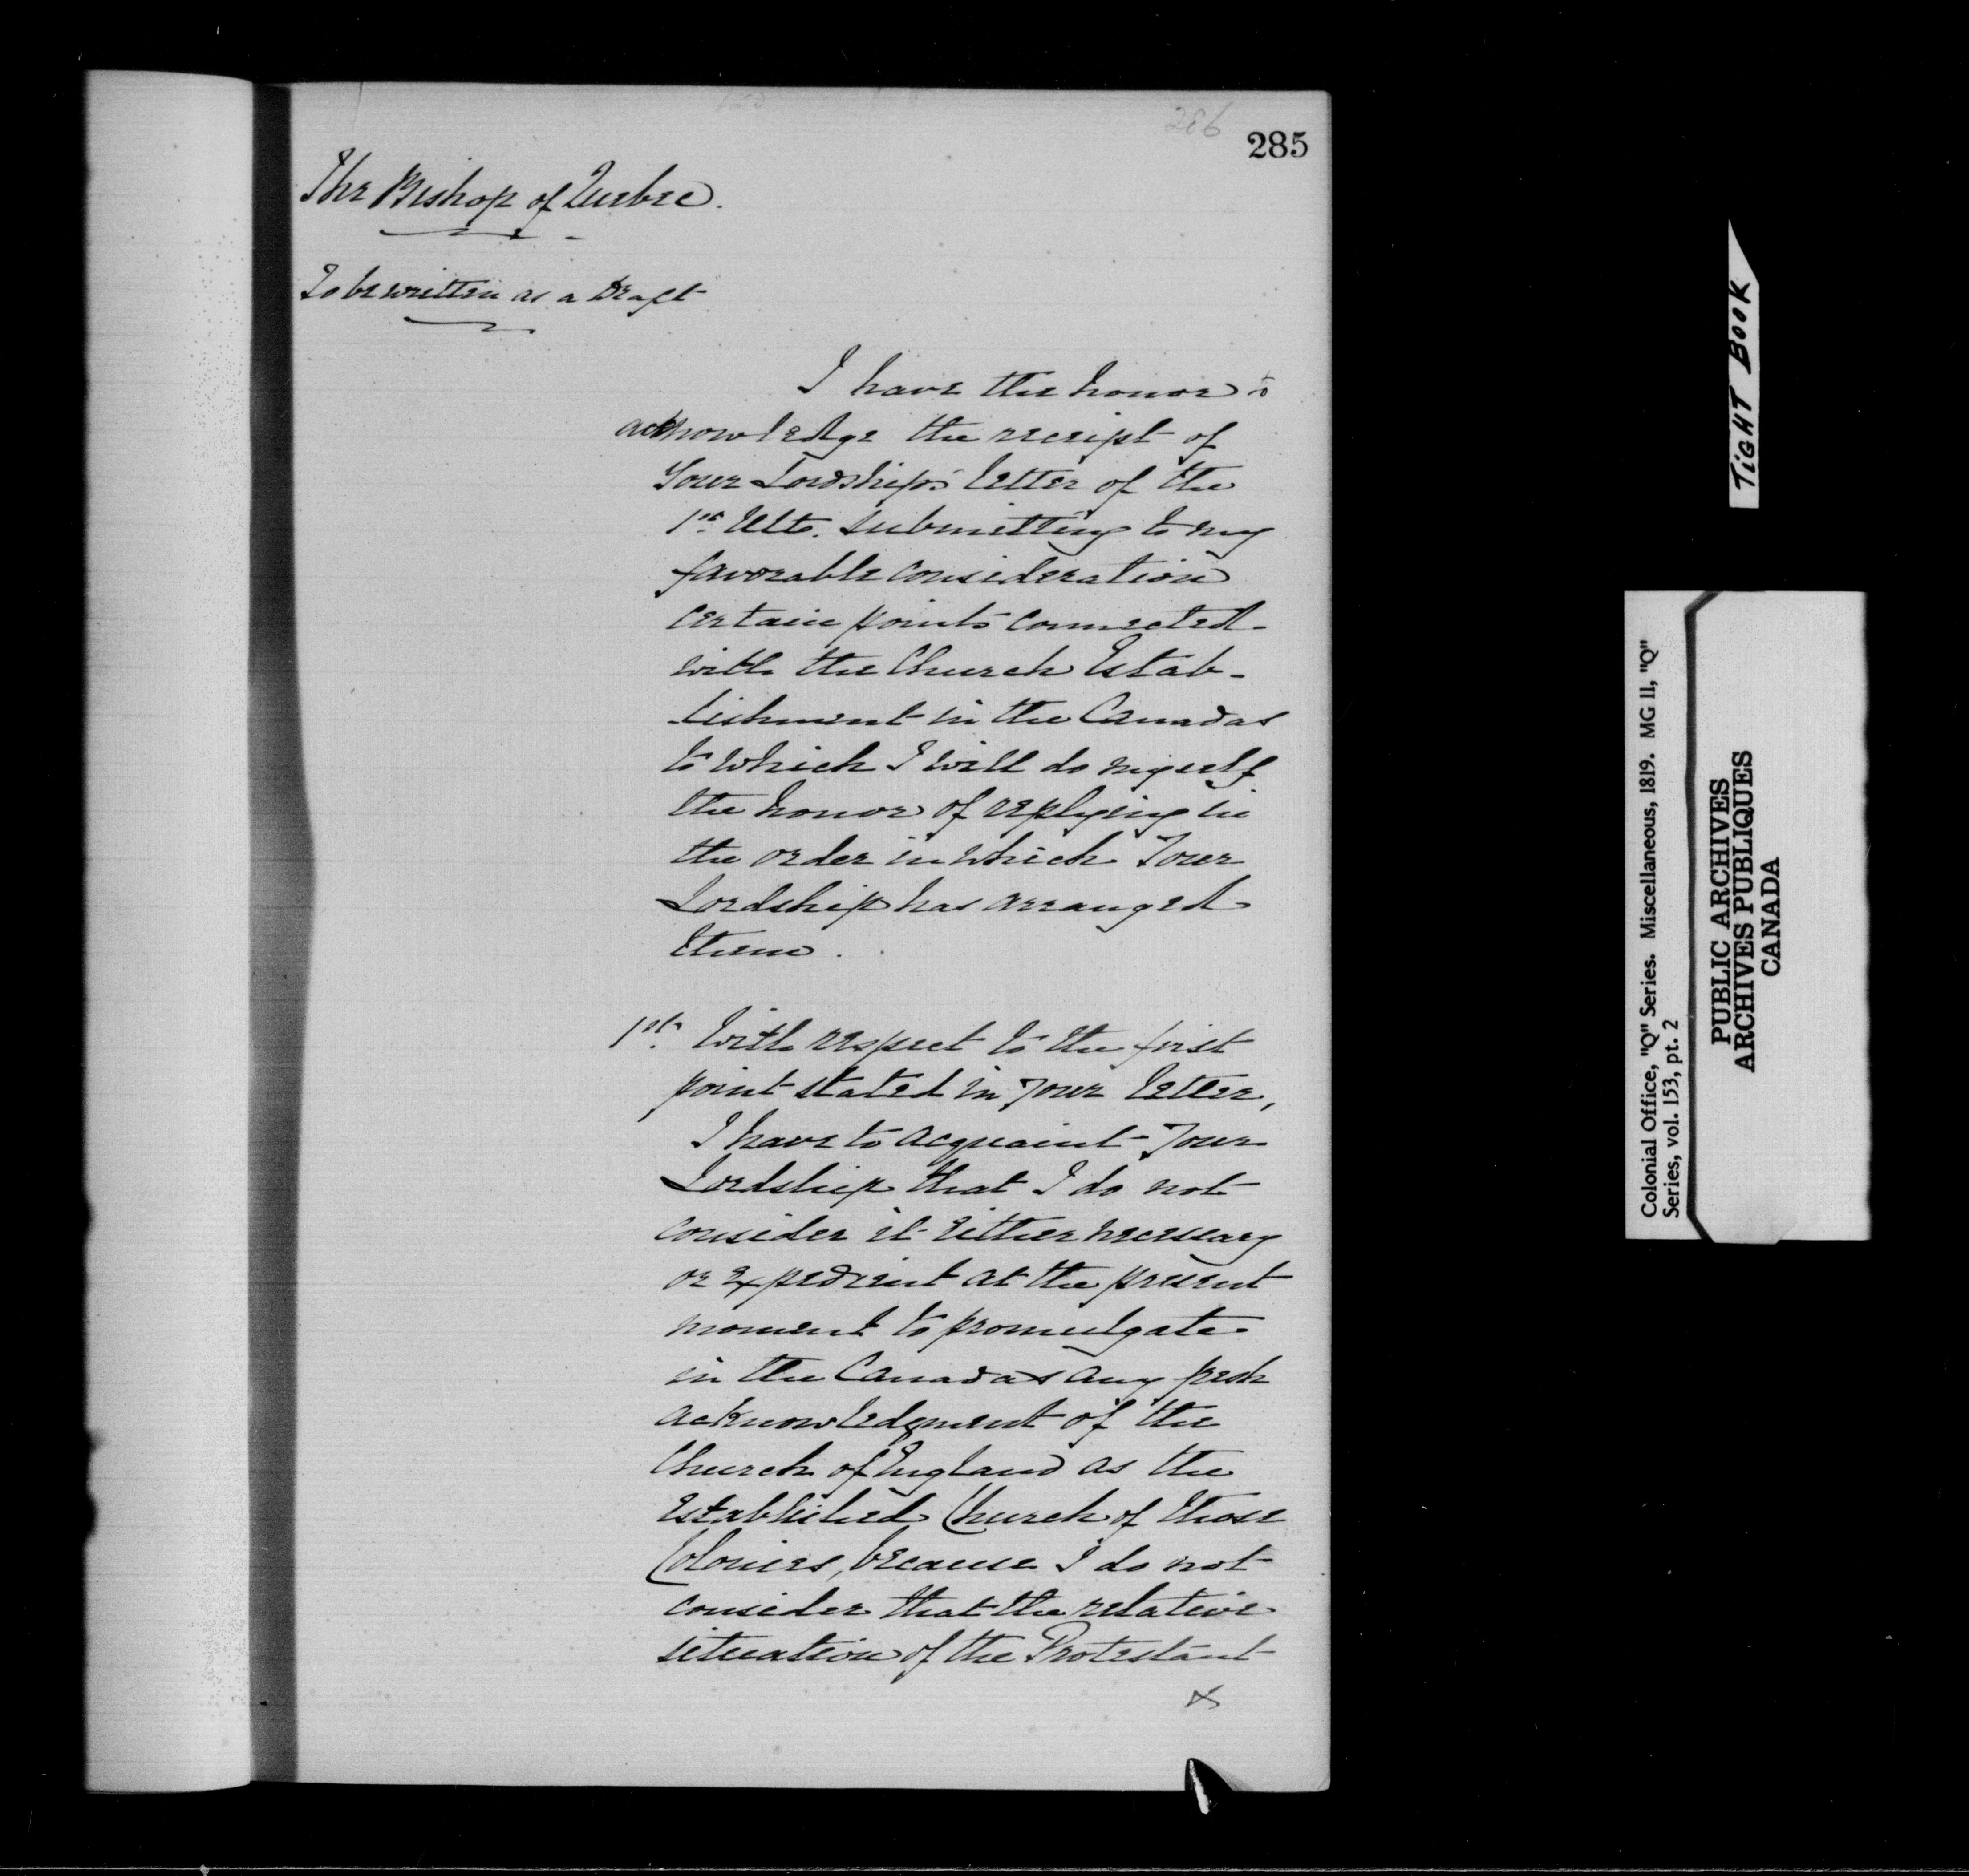 286
285
The Bishop of Quebec.
To be written as a Draft
I have the honor to
acknowledge the receipt of
Your Lordship's letter of the
1st Ulto. submitting to my
favorable consideration
certain points connected
with the Church Estab-
lishment in the Canadas
to which I will do myself
the honor of replying in
the order in which Your
Lordship has arranged
them.
1st. With respect to the first
point stated in your letter,
I have to acquaint Your
Lordship that I do not
consider it either necessary
or expedient at the present
moment to promulgate
in the Canadas any fresh
acknowledgment of the
Church of England as the
established Church of those
Colonies, because I do not
consider that the relative
situation of the Protestant
TIGHT BOOK
Colonial Office, "Q" Series. Miscellaneous, 1819. MG 11, "Q"
Series, vol. 153, pt. 2
PUBLIC ARCHIVES
ARCHIVES PUBLIQUES
CANADA